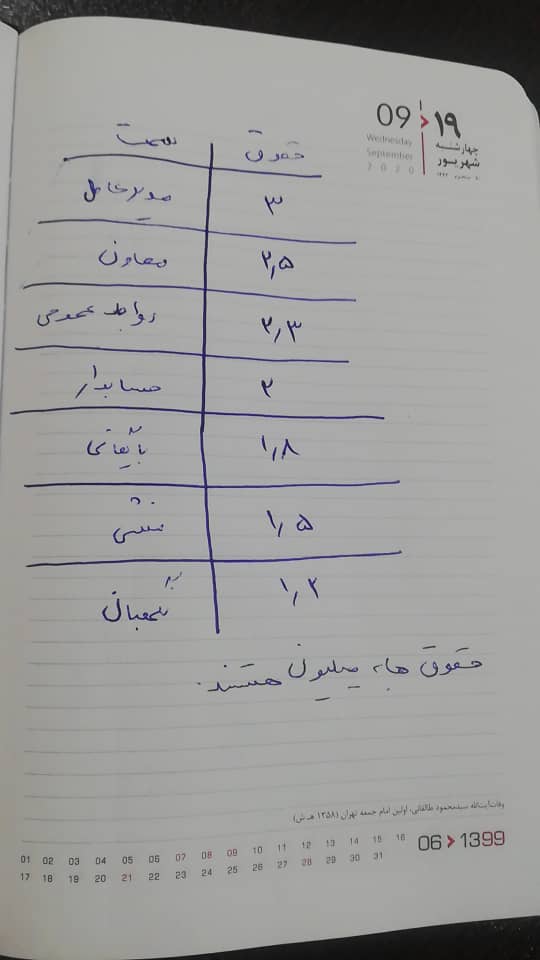 09 > ۱۹
Wednesday چهارشنبه
September شهریور
2020
سمت حقوق
مدیرعامل ۳
معاون ۲٫۵
روابط عمومی ۲٫۳
حسابدار ۲
بایگانی ۱٫۸
منشی ۱٫۵
نگهبان ۱٫۲
حقوق ها به میلیون هستند.
وفات آیت‌الله سیدمحمود طالقانی، اولین امام جمعه تهران (۱۳۵۸ هـ ش)
06 > 1399
01 02 03 04 05 06 07 08 09 10 11 12 13 14 15 16
17 18 19 20 21 22 23 24 25 26 27 28 29 30 31